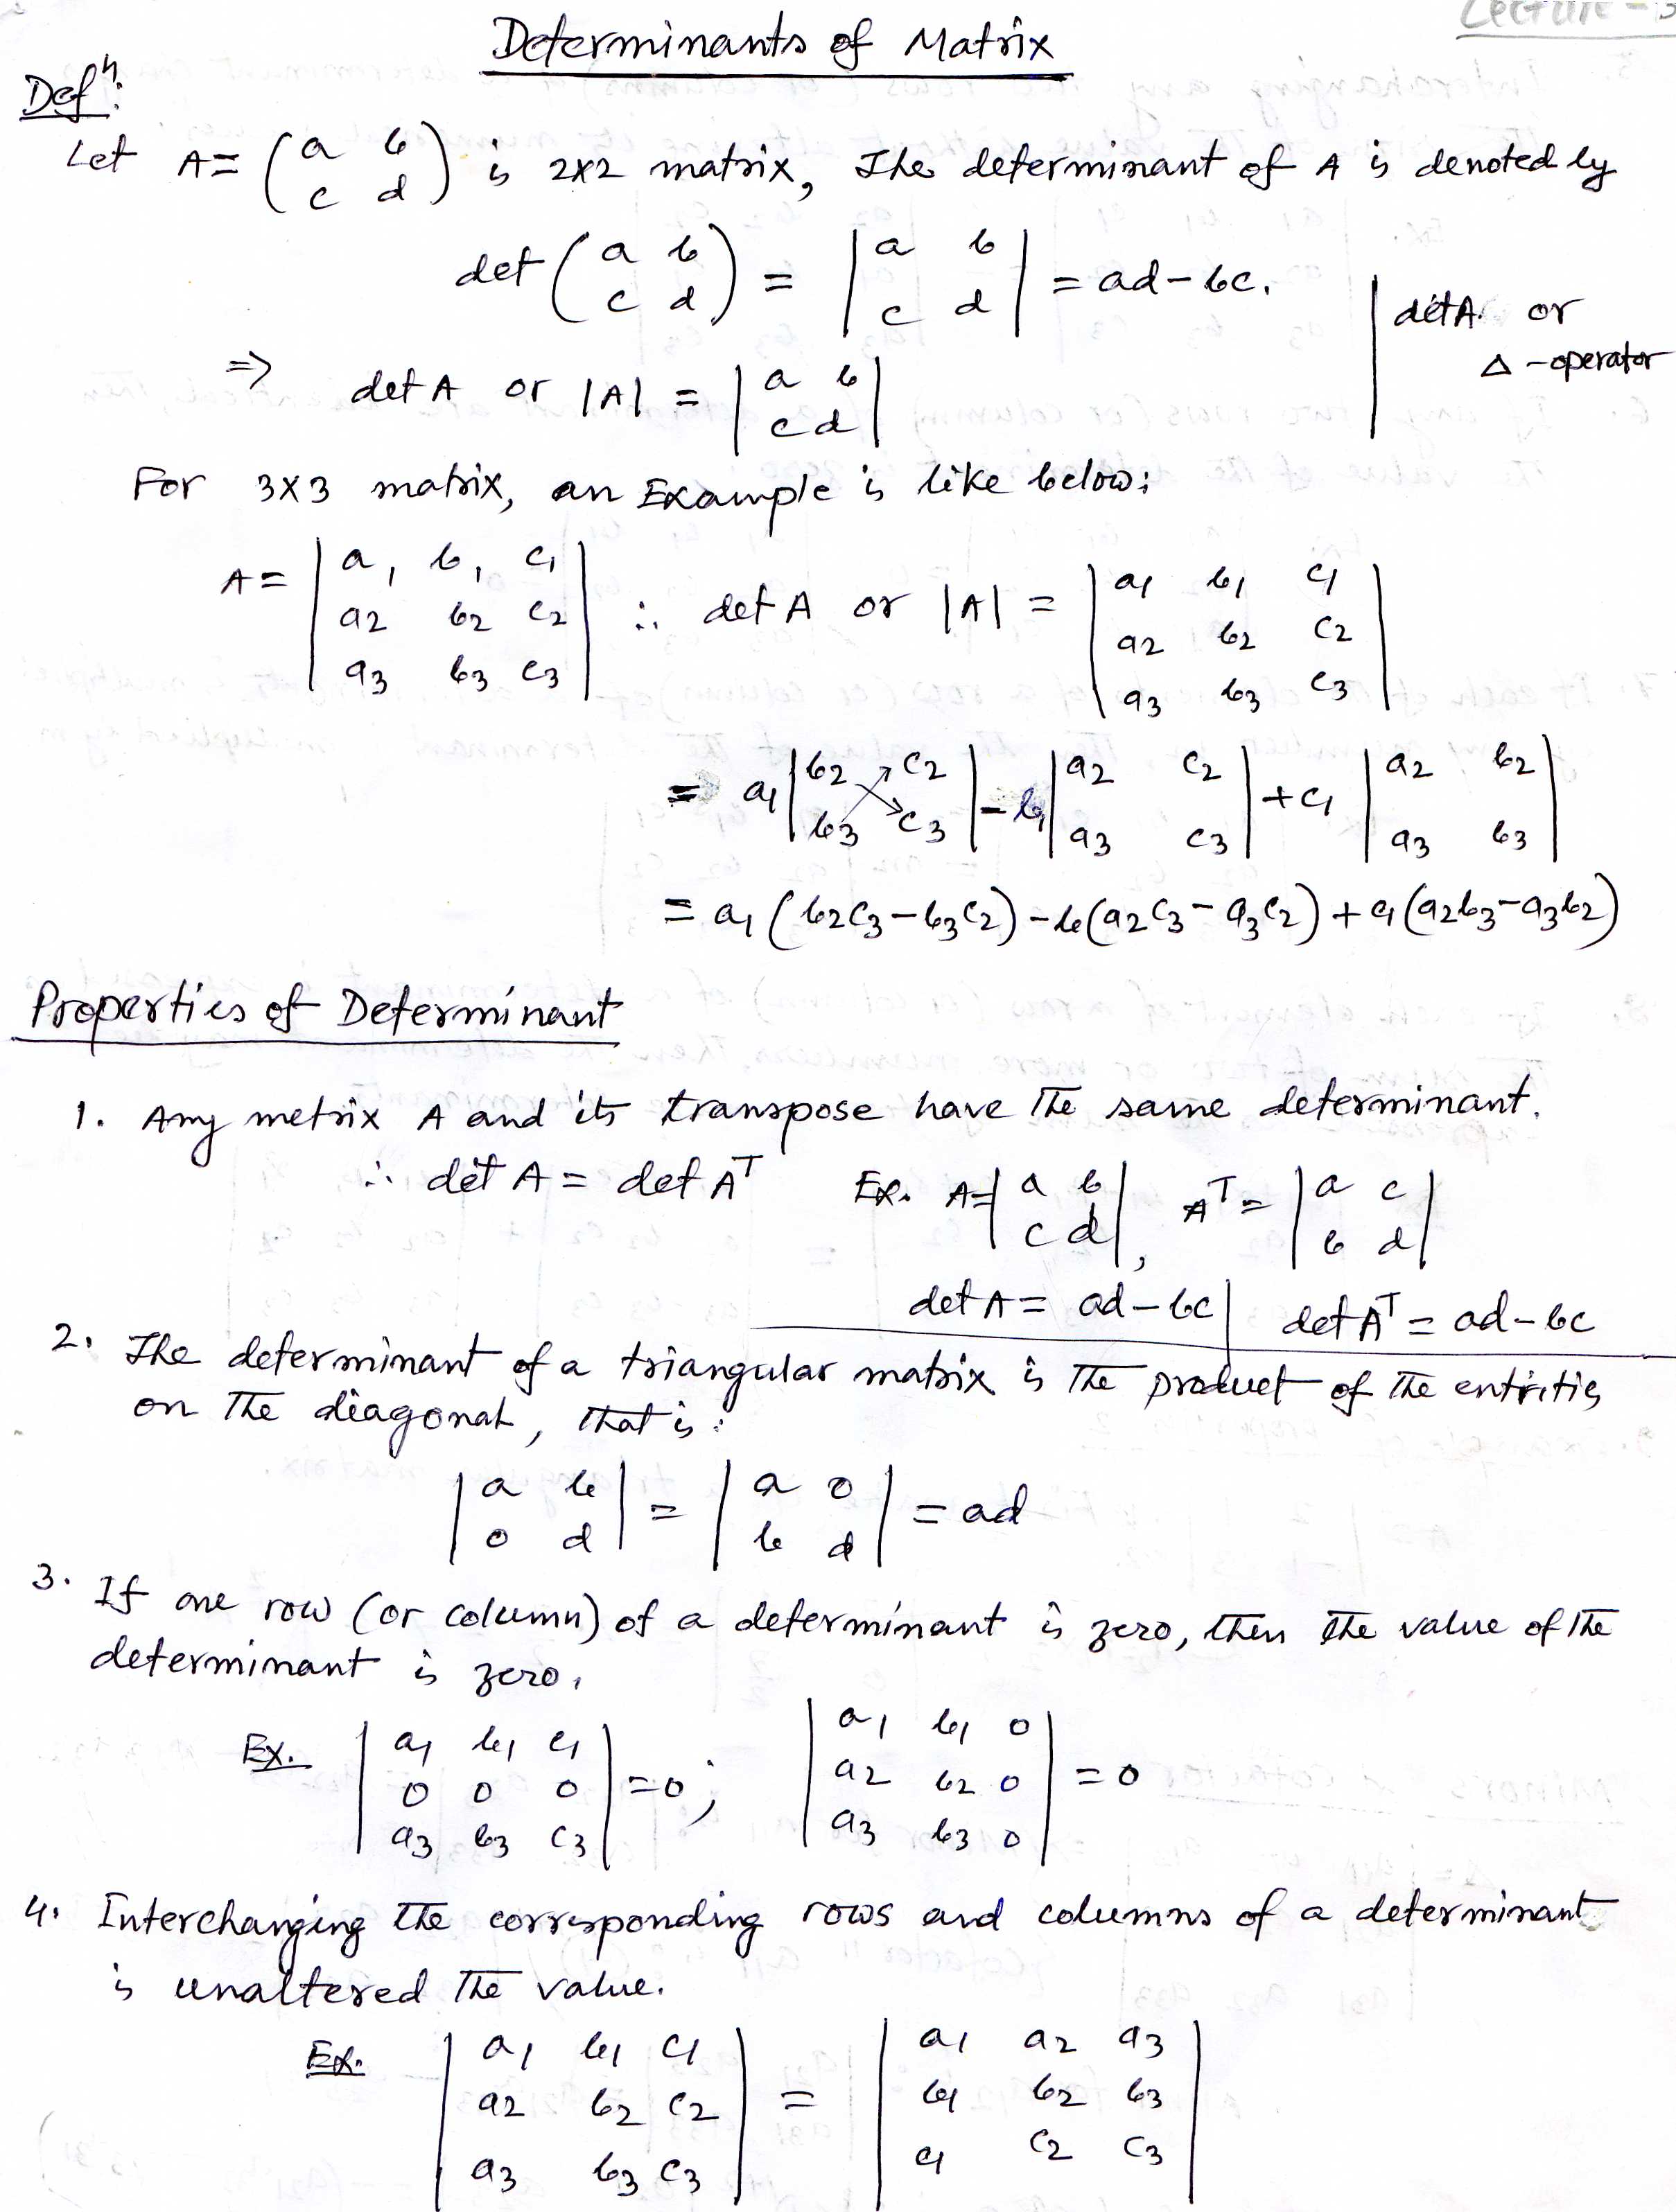 Lecture - 3
Determinants of Matrix
Defⁿ:
Let A = (a b; c d) is 2x2 matrix, The determinant of A is denoted by
det (a b; c d) = |a b; c d| = ad - bc.
det A or
Δ - operator
=> det A or |A| = |a b; c d|
For 3x3 matrix, an Example is like below:
A = |a1 b1 c1; a2 b2 c2; a3 b3 c3| ∴ det A or |A| = |a1 b1 c1; a2 b2 c2; a3 b3 c3|
= a1 |b2 c2; b3 c3| - b1 |a2 c2; a3 c3| + c1 |a2 b2; a3 b3|
= a1 (b2c3 - b3c2) - b(a2c3 - a3c2) + c1(a2b3 - a3b2)
Properties of Determinant
1. Any metrix A and its transpose have the same determinant.
∴ det A = det Aᵀ Ex. A = |a b; c d|, Aᵀ = |a c; b d|
det A = ad - bc | det Aᵀ = ad - bc
2. The determinant of a triangular matrix is the product of the entrities
on the diagonal, that is:
|a b; 0 d| = |a 0; b d| = ad
3. If one row (or column) of a determinant is zero, then the value of the
determinant is zero.
Ex. |a1 b1 c1; 0 0 0; a3 b3 c3| = 0; |a1 b1 0; a2 b2 0; a3 b3 0| = 0
4. Interchanging the corresponding rows and columns of a determinant
is unaltered the value.
Ex. |a1 b1 c1; a2 b2 c2; a3 b3 c3| = |a1 a2 a3; b1 b2 b3; c1 c2 c3|